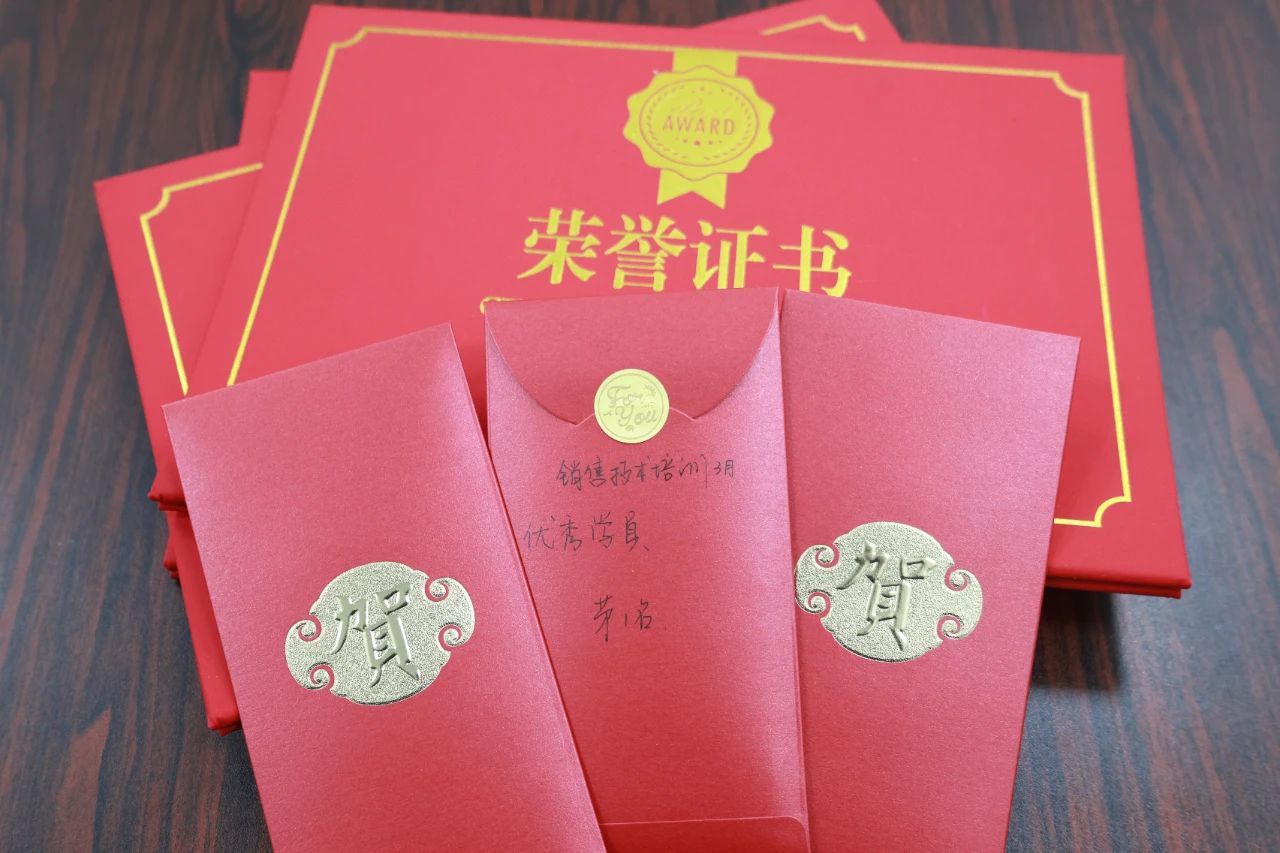 AWARD
荣誉证书
For
You
销售技术培训3月
优秀学员
第1名
賀
賀